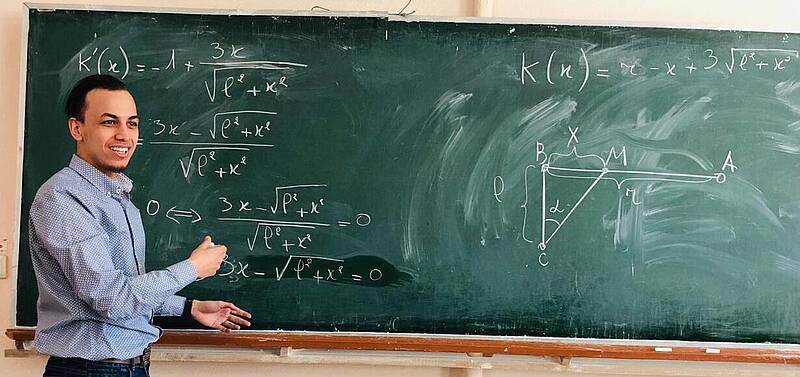 K'(x) = -1 + 3x / √(ℓ² + x²)
= (3x - √(ℓ² + x²)) / √(ℓ² + x²)
0 ⟺ (3x - √(ℓ² + x²)) / √(ℓ² + x²) = 0
3x - √(ℓ² + x²) = 0
K(x) = r - x + 3√(ℓ² + x²)
X
B M A
ℓ r
α
C